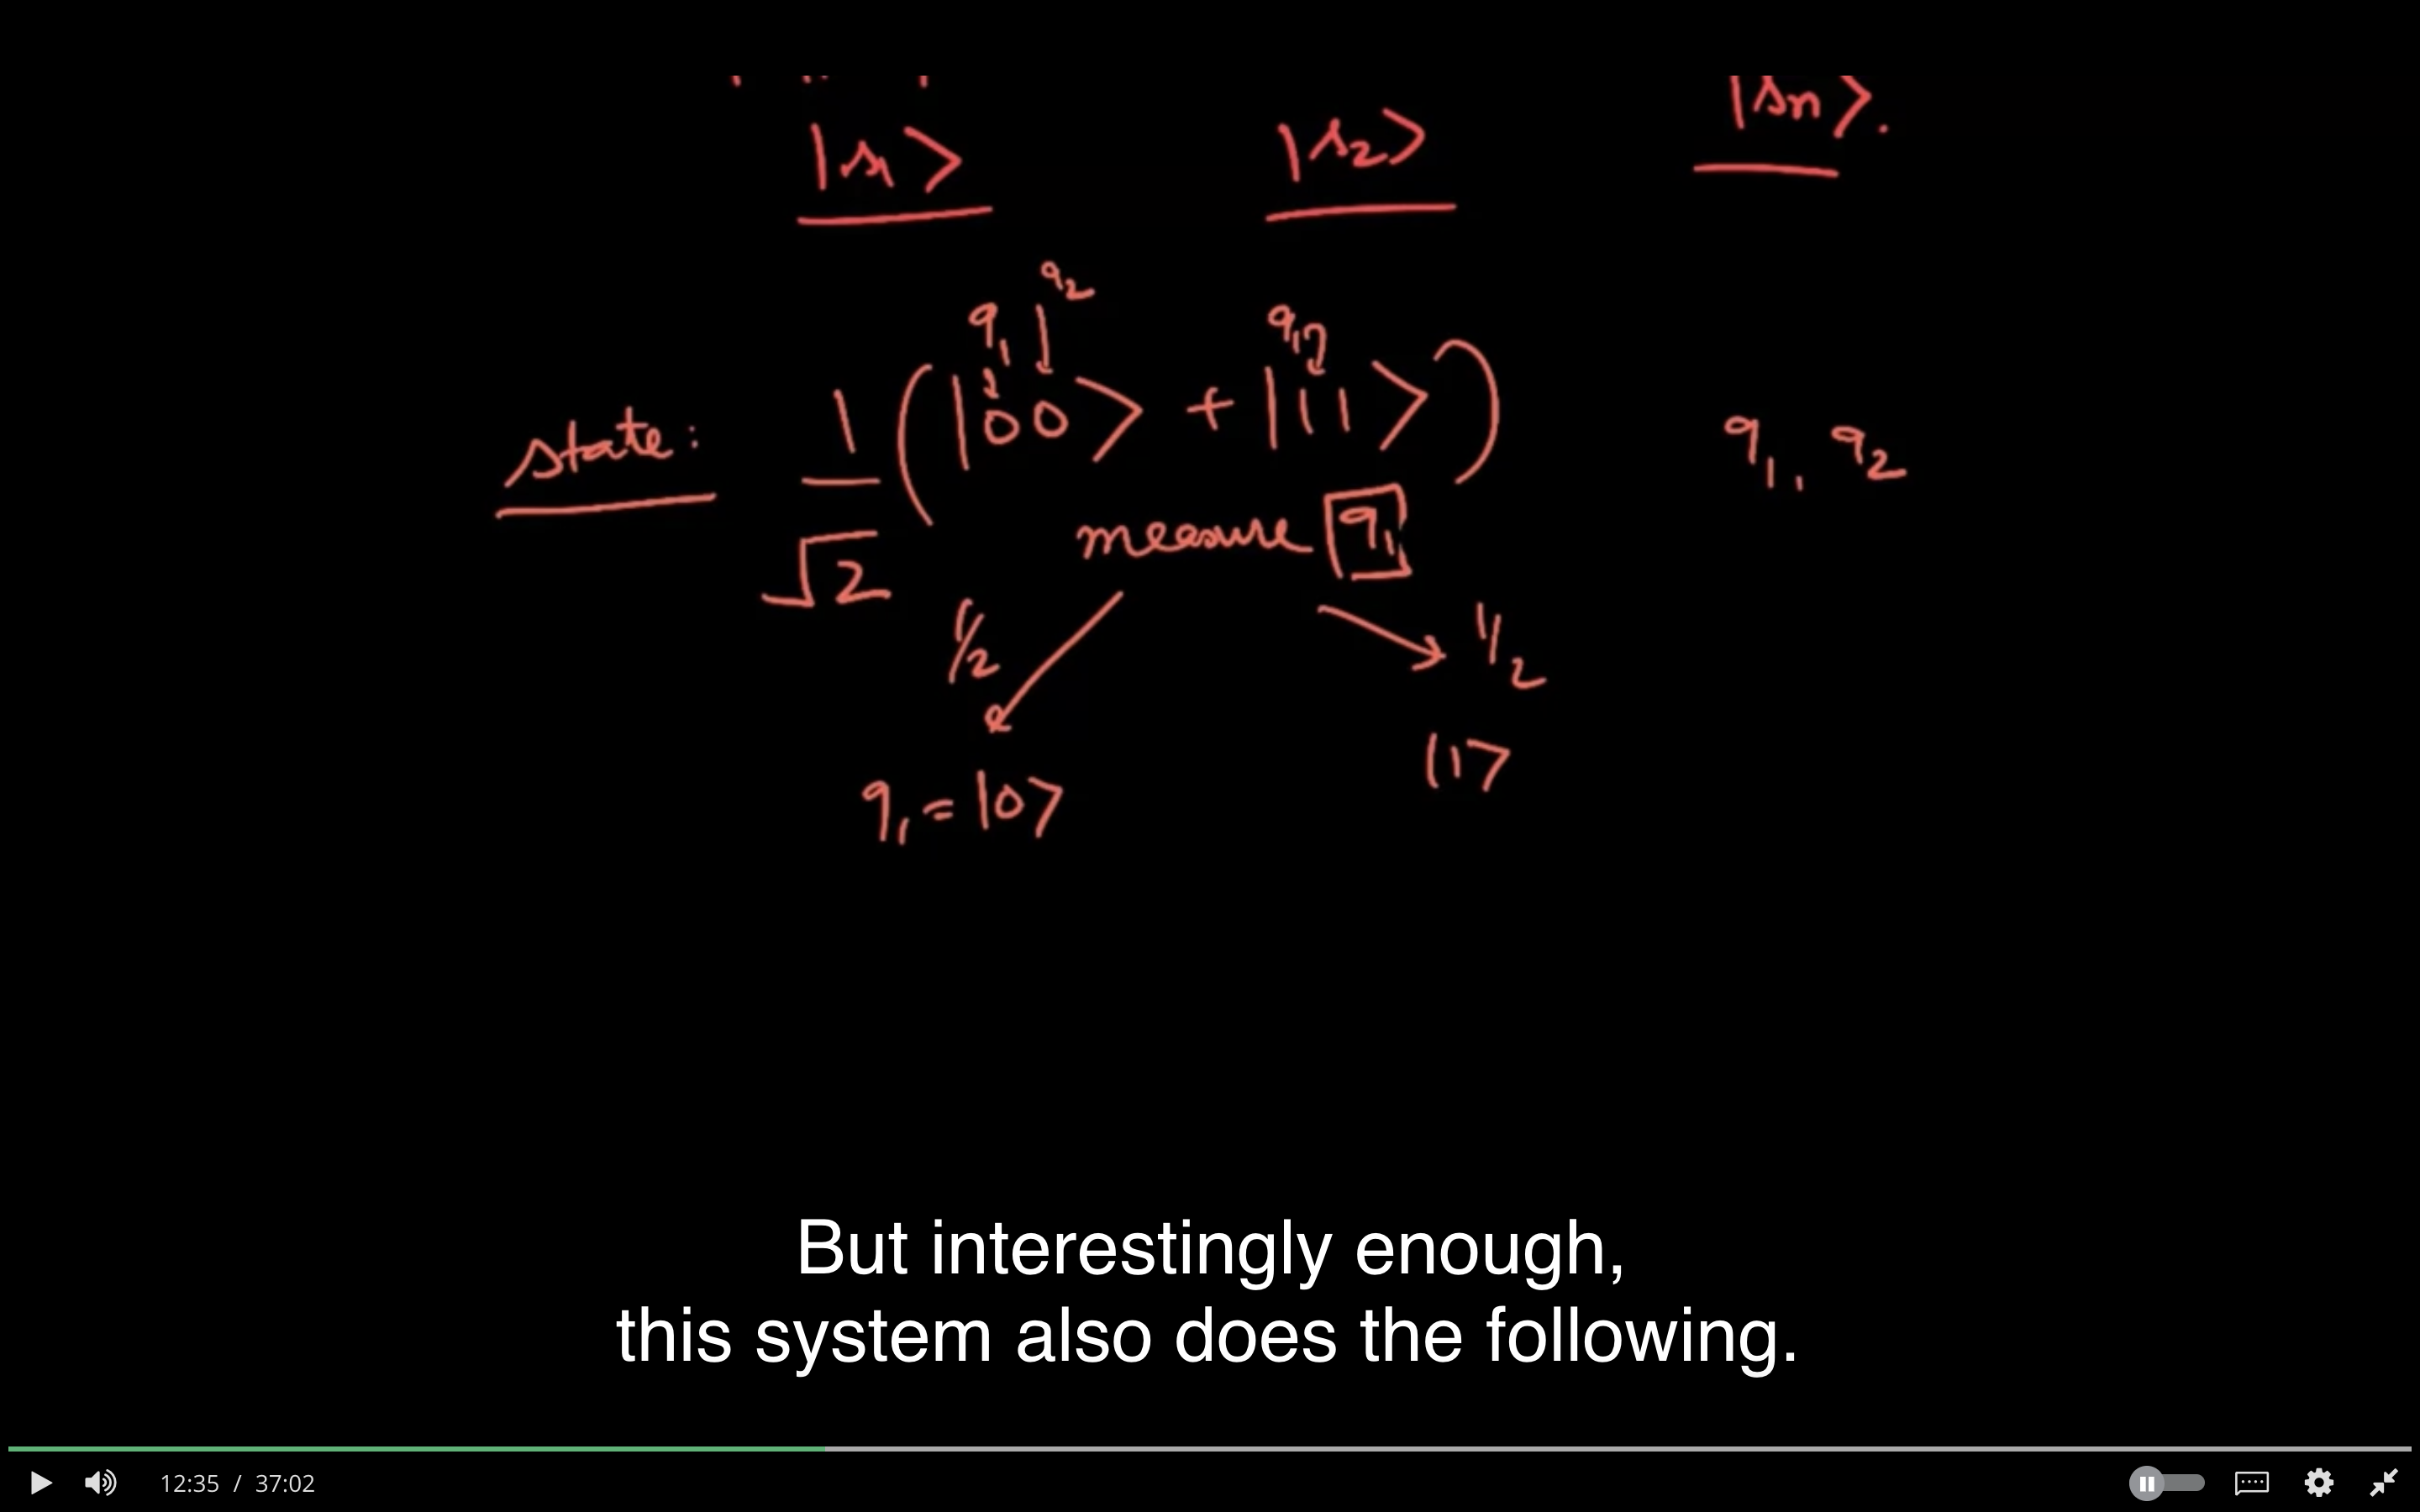 |s1> |s2> |sn>.
q1 q2 q1
state: 1/√2 (|00> + |11>) q1, q2
measure q1
1/2 1/2
q1 = |0> |1>
But interestingly enough,
this system also does the following.
12:35 / 37:02